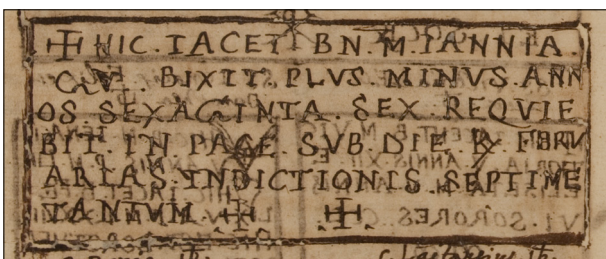 ☩ HIC. IACET BN. M. IANNIA.
QVE. BIXIT. PLVS. MINVS. ANN
OS. SEXAGINTA. SEX. REQVIE
BIT IN PACE. SVB. DIE. FEBRV
ARIAS. INDICTIONIS. SEPTIME
TANTVM ☩ ☩